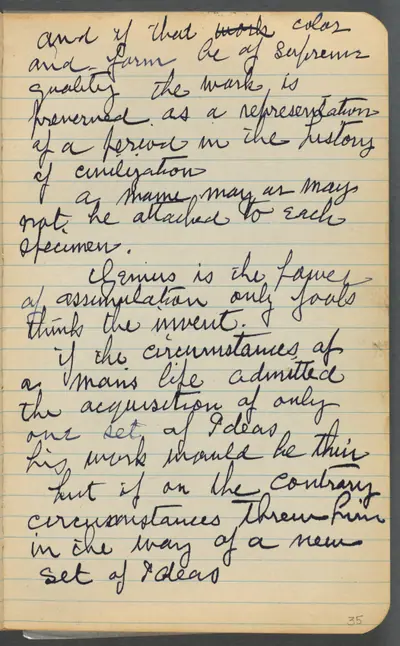 and if that work color
and form be of supreme
quality the work is
preserved as a representation
of a period in the history
of civilization
a name may or may
not, be attached to each
specimen.
Genius is the power
of assimilation only fools
think the invent.
if the circumstances of
a mans life admitted
the acquisition of only
one set of Ideas
his work would be thin
but if on the contrary
circumstances threw him
in the way of a new
set of Ideas
35